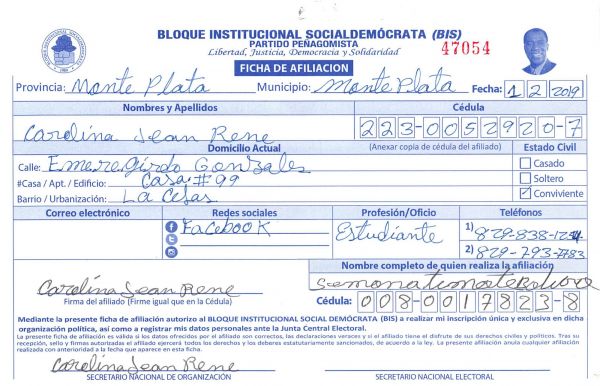 BLOQUE INSTITUCIONAL SOCIALDEMÓCRATA (BIS)
PARTIDO PEÑAGOMISTA
Libertad, Justicia, Democracia y Solidaridad
47054
FICHA DE AFILIACION
Provincia: Monte Plata Municipio: Monte Plata Fecha: 1 2 2019
Nombres y Apellidos Cédula
Carolina Jean Rene 223-0052920-7
Domicilio Actual (Anexar copia de cédula del afiliado) Estado Civil
Calle: Emeregirdo Gonzales Casado
#Casa / Apt. / Edificio: Casa: #99 Soltero
Barrio / Urbanización: La Cejas Conviviente
Correo electrónico Redes sociales Profesión/Oficio Teléfonos
Facebook Estudiante 1) 829-838-
2) 829-793-
Nombre completo de quien realiza la afiliación
Carolina Jean Rene
Firma del afiliado (Firme igual que en la Cédula) Cédula: 008-0017823-8
Mediante la presente ficha de afiliación autorizo al BLOQUE INSTITUCIONAL SOCIAL DEMÓCRATA (BIS) a realizar mi inscripción única y exclusiva en dicha
organización política, así como a registrar mis datos personales ante la Junta Central Electoral.
La presente ficha de afiliación es válida si los datos ofrecidos por el afiliado son correctos, las declaraciones veraces y si el afiliado tiene el disfrute de sus derechos civiles y políticos. Tras su
recepción, sello y firmas autorizadas el afiliado ejercerá todos los derechos y los deberes estatutariamente sancionados, de acuerdo a la ley. La presente afiliación anula cualquier afiliación
realizada con anterioridad a la fecha que aparece en esta ficha.
Carolina Jean Rene
SECRETARIO NACIONAL DE ORGANIZACIÓN SECRETARIO NACIONAL ELECTORAL